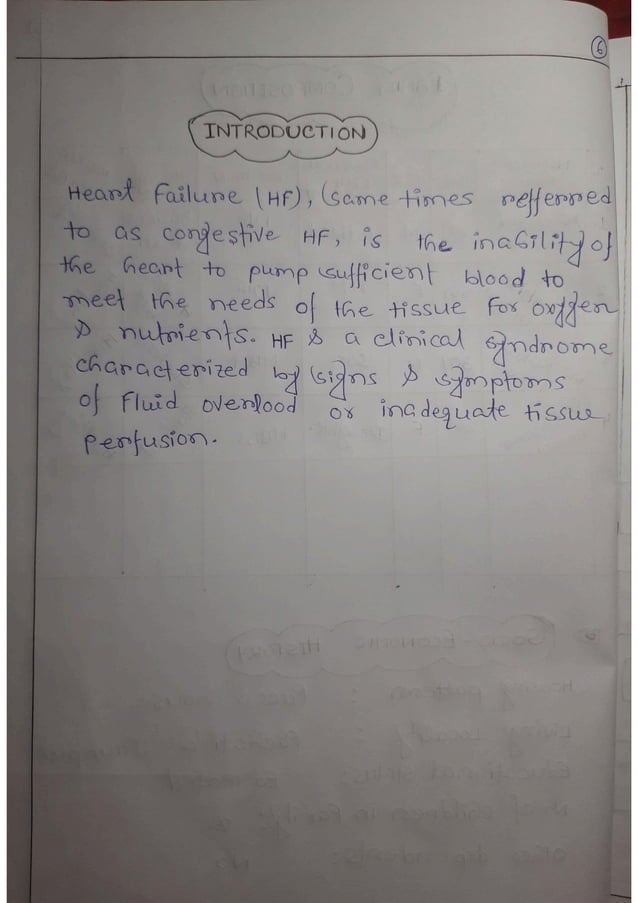 6
INTRODUCTION
Heart Failure (HF), (same times refferred
to as congestive HF, is the inability of
the heart to pump sufficient blood to
meet the needs of the tissue for oxygen
& nutrients. HF & a clinical syndrome
characterized by signs & symptoms
of Fluid overlood or inadequate tissue
perfusion.